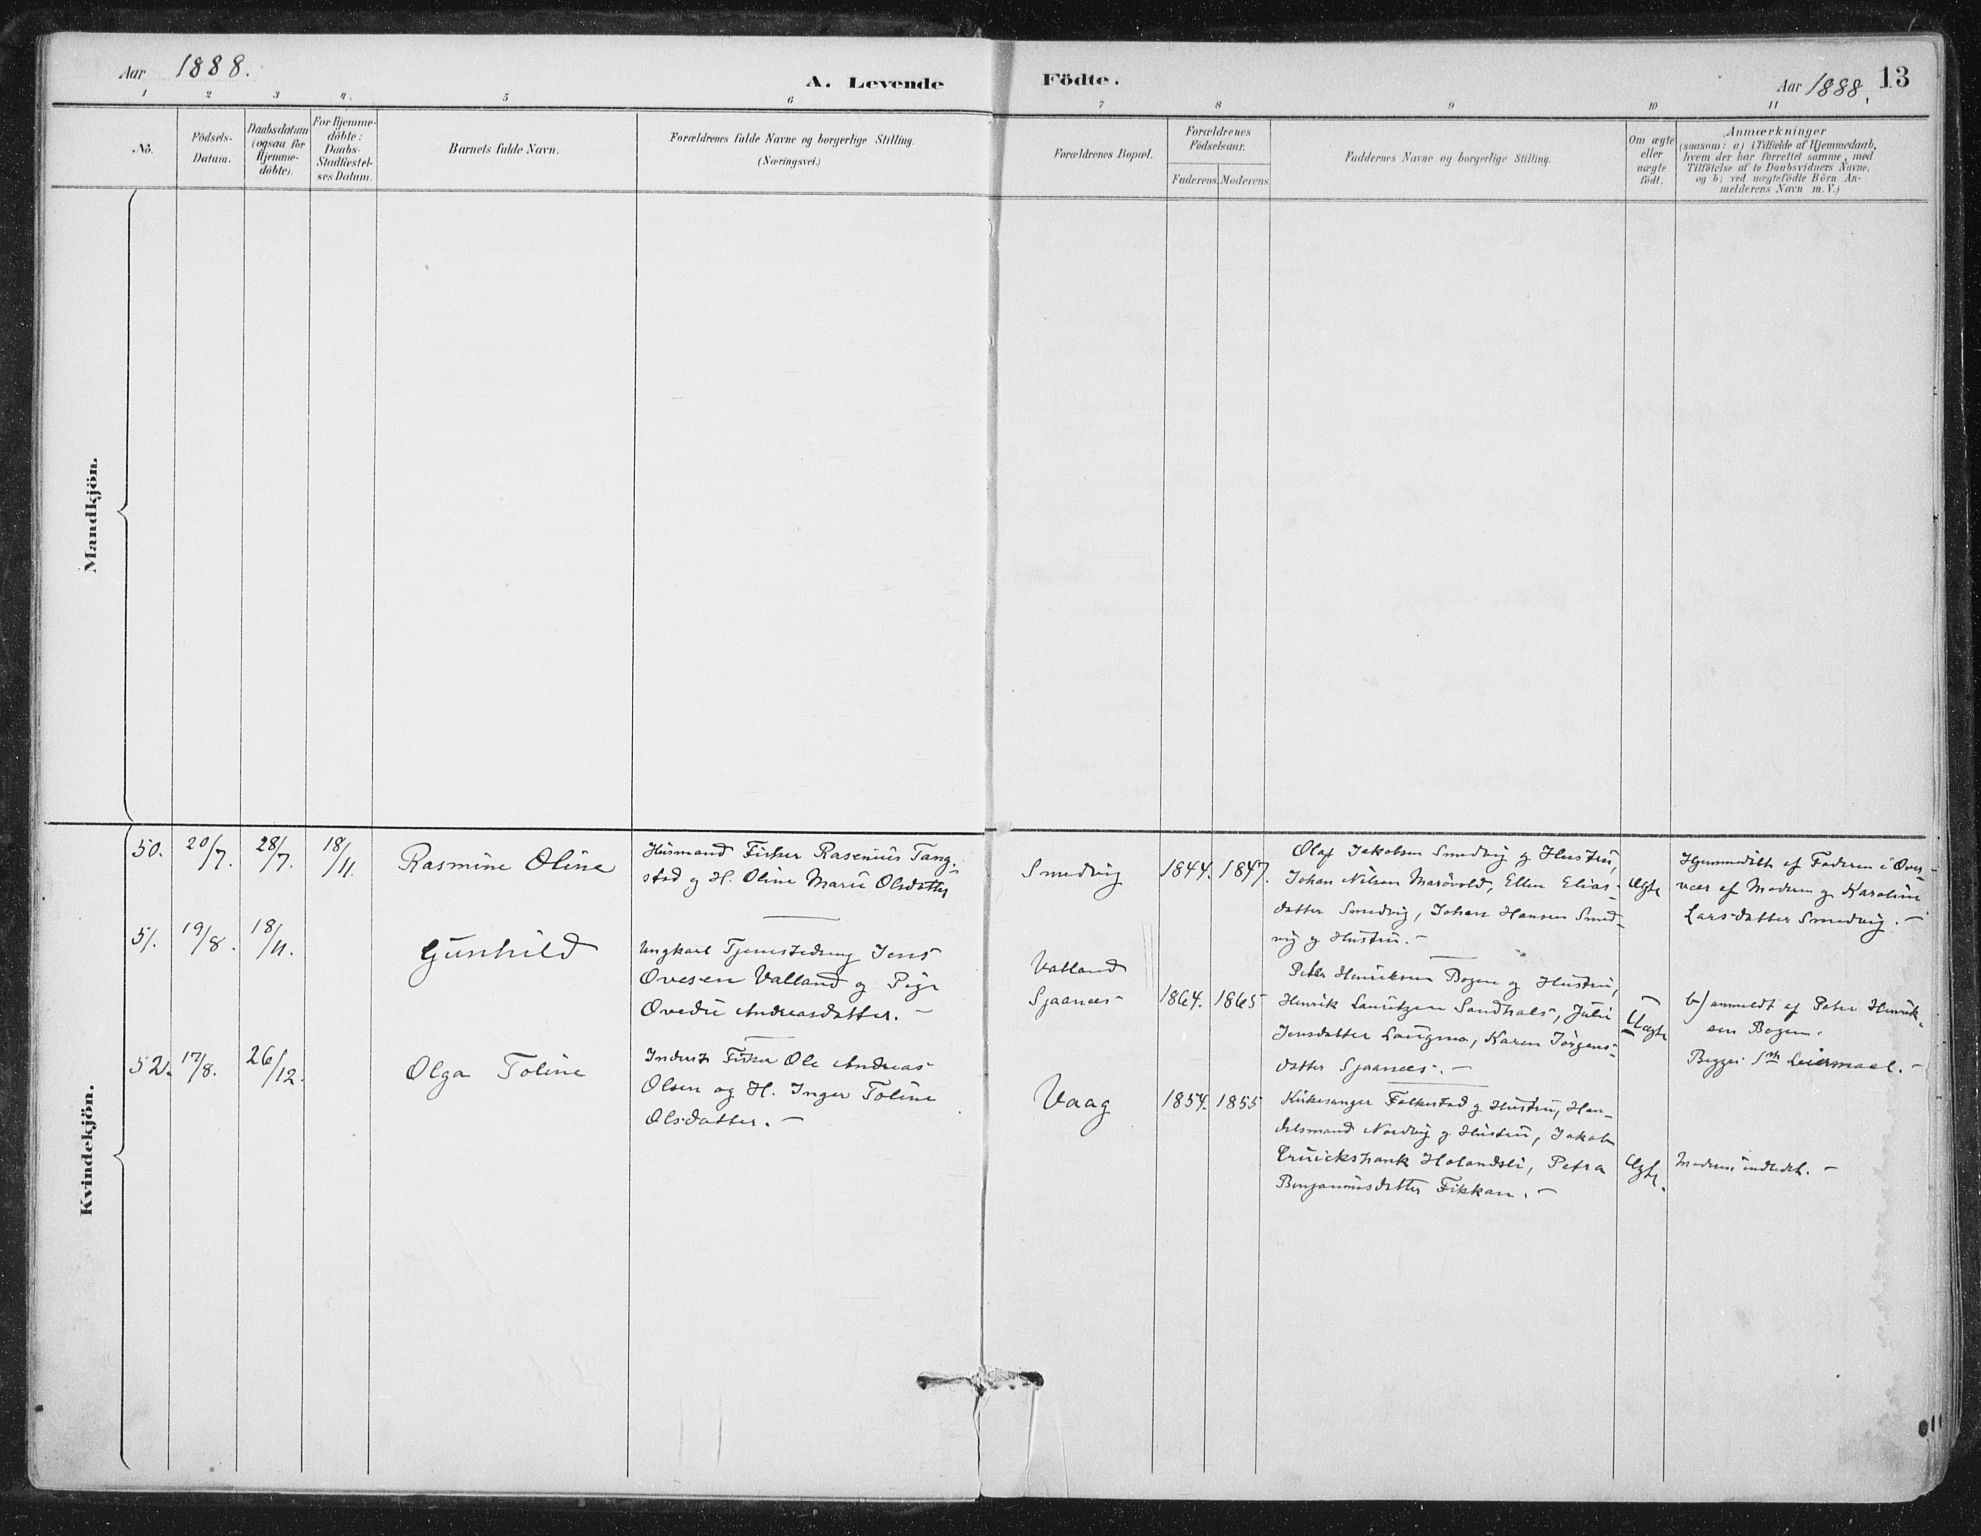 Aar 1888.
A. Levende Födte.
Aar 1888.
13
1 2 3 4. 5 6 7 8 9 10 11
No.
Födsels-
Datum.
Daabsdatum
(ogsaa for
Hjemme-
döbte).
For Hjemme-
döbte:
Daabs-
Stadfæstel-
ses Datum.
Barnets fulde Navn.
Forældrenes fulde Navne og borgerlige Stilling.
(Næringsvei.)
Forældrenes Bopæl.
Forældrenes
Födselsaar.
Faderens. Moderens.
Faddernes Navne og borgerlige Stilling.
Om ægte
eller
uægte
födt.
Anmærkninger
(saasom: a) i Tilfælde af Hjemmedaab,
hvem der har forrettet samme, med
Tilföielse af to Daabsvidners Navne,
og b) ved uægtefödte Börn An-
melderens Navn m. V.)
Mandkjön.
Kvindekjön.
50.
20/7.
28/7.
18/11.
Rasmine Oline
Husmand Fisker Rasenius Tang-
stad og H. Oline Marie Olsdatter
Smedvig
1844. 1847.
Olaf Jakobsen Smedvig og Hustru,
Johan Nilsen Marövold, Ellen Elias-
datter Smedvig, Johan Hansen Smed-
vig og Hustru. —
Ægte
Hjemmedöbt af Faderen i Over-
vær af Moderen og Karoline
Larsdatter Smedvig. —
51.
19/8.
18/11.
Gunhild
Ungkarl Tjenestedreng Jens
Ovesen Valland og Pige
Ovedie Andreasdatter. —
Valland
Sjaanes
1864. 1865
Peter Henriksen Bogen og Hustru,
Henrik Lauritzen Sandhals, Julie
Jensdatter Langmo, Karen Jörgens-
datter Sjaanes. —
Uægte
b/ anmeldt af Peter Henrik-
sen Bogen.
Begges 1ste Leiermaal. —
52.
17/8.
26/12.
Olga Toline
Inderst Fisker Ole Andreas
Olsen og H. Inger Toline
Olsdatter. —
Vaag
1854. 1855
Kirkesanger Falkestad og Hustru, Han-
delsmand Nordvig og Hustru, Jakob
Cruickshank Holandsli, Petra
Benjaminsdatter Fikkan. —
Ægte.
Moderen indledet. —